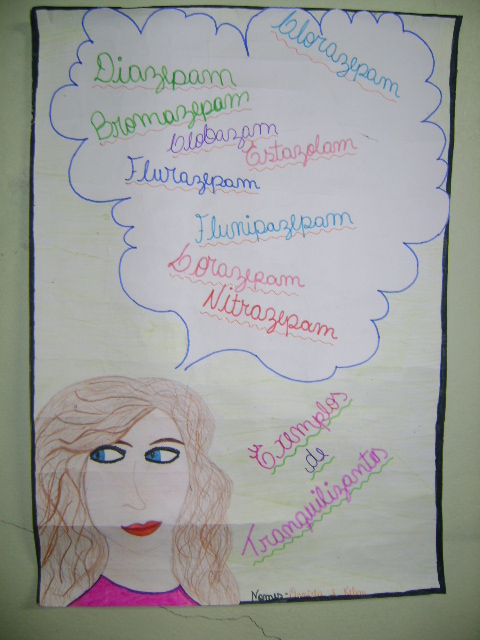 Clorazepam
Diazepam
Bromazepam
Clobazam
Estazolam
Flurazepam
Flunipazepam
Lorazepam
Nitrazepam
Exemplos
de
Tranquilizantes
Nomes: